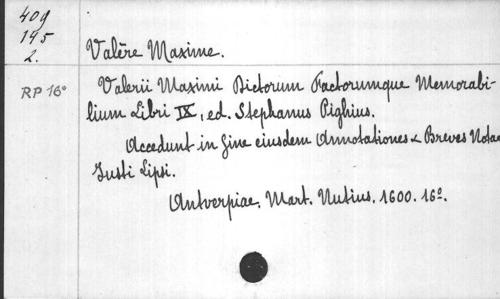 409
145
2.
Valère Maxime.
RP 16°
Valerii Maximi Dictorum Factorumque Memorabi-
lium Libri IX, ed. Stephanus Pighius.
Accedunt in fine eiusdem Annotationes & Breves Notae
Justi Lipsi.
Antverpiae. Mart. Nutius. 1600. 16°.